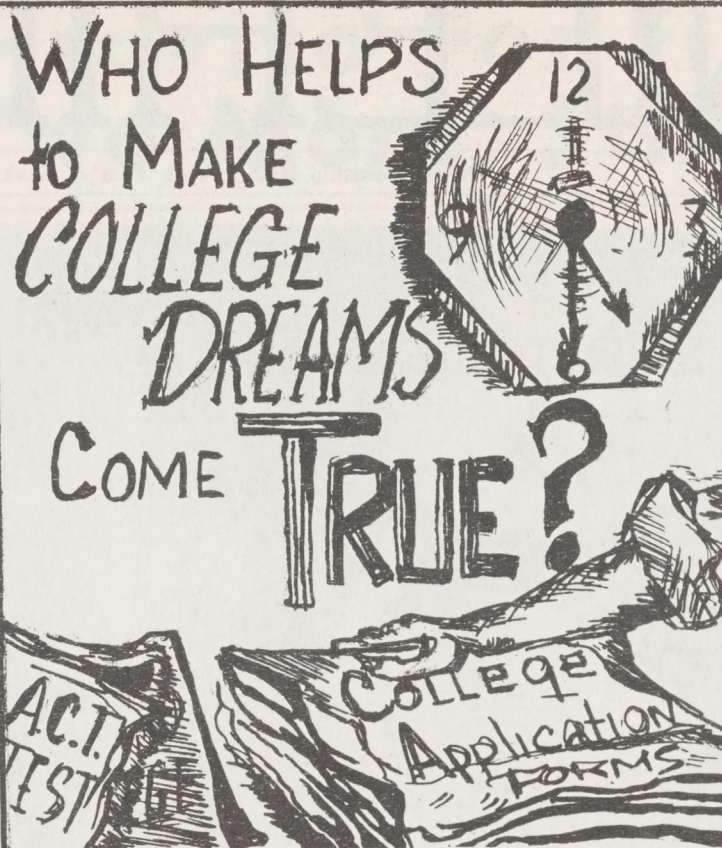 WHO HELPS
to MAKE
COLLEGE
DREAMS
COME TRUE?
12
9
3
6
COLLEGE
APPLICATION
FORMS
A.C.T.
TEST